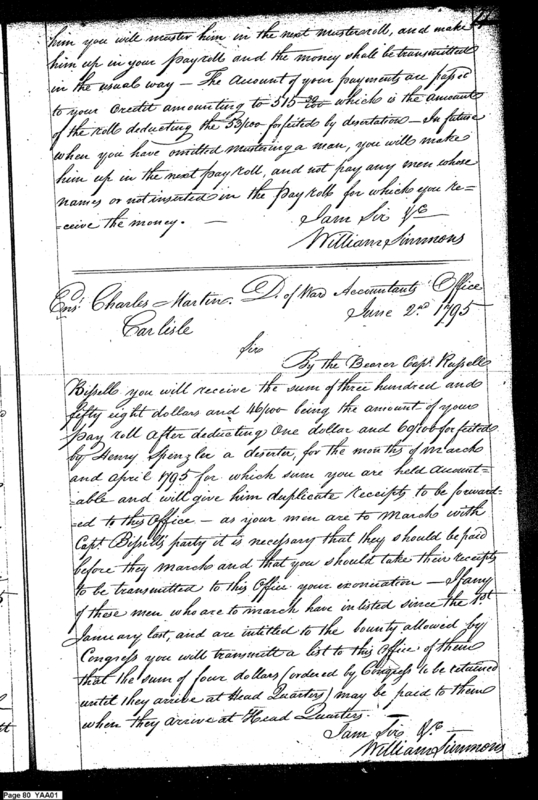 him you will muster him in the next muster roll, and make
him up in your pay roll and the money shall be transmitted
in the usual way — The Amount of your payments are passed
to your credit amounting to 515 which is the amount
of the roll deducting the 53/100 forfeited by desertation — In future
when you have omitted mustering a man, you will make
him up in the next pay roll, and not pay any men whose
names or not inserted in the pay rolls for which you re-
-ceive the money. —
I am Sir &c
William Simmons
Ens. Charles Martin. D. of War Accountants Office
Carlisle June 2nd 1795
Sir
By the Bearer Capt. Russell
Bissell you will receive the sum of three hundred and
fifty eight dollars and 46/100 being the amount of your
pay roll after deducting One dollar and 60/100 forfeited
by Henry Spenzler a deserter, for the months of March
and april 1795 for which sum you are held account-
-able and will give him duplicate receipts to be forward-
-ed to this Office — as your men are to march with
Capt Bissell's party it is necessary that they should be paid
before they march and that you should take their receipts
to be transmitted to this Office your exoneration — If any
of these men who are to march have inlisted since the 1st
January last, and are intitled to the bounty allowed by
Congress you will transmitt a list to this Office of them
that the sum of four dollars (ordered by Congress to be retained
until they arrive at Head Quarters) may be paid to them
when they arrive at Head Quarters.
I am Sir &c
William Simmons
Page 80 YAA01